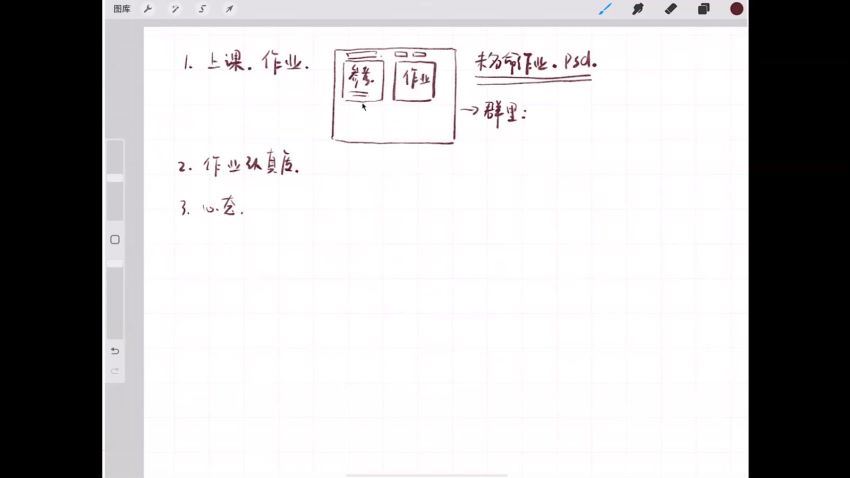 图库
1. 上课. 作业.
参考.
作业
未命名作业. psd.
→群里:
2. 作业认真度.
3. 心态.